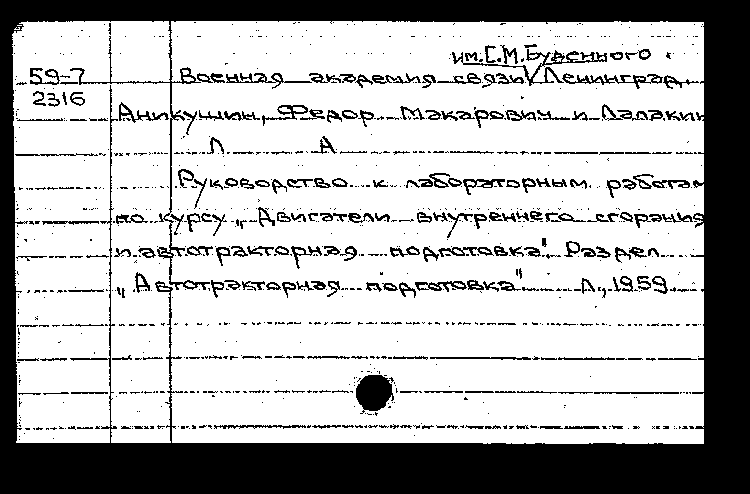 им. С.М. Буденного.
59-7 Военная академия связи √ Ленинград.
2316
Аникушин, Федор Макарович и Лапакин
Л А
Руководство к лабораторным работам
по курсу „Двигатели внутреннего сгорания
и автотракторная подготовка". Раздел
„Автотракторная подготовка" Л., 1959.